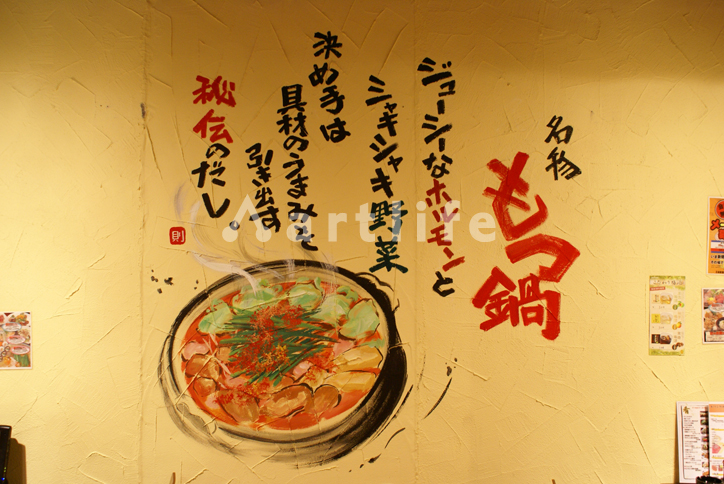 名物
もつ鍋
ジューシーなホルモンと
シャキシャキ野菜
決め手は
具材のうまみを
引き出す
秘伝のだし。
則
artfire